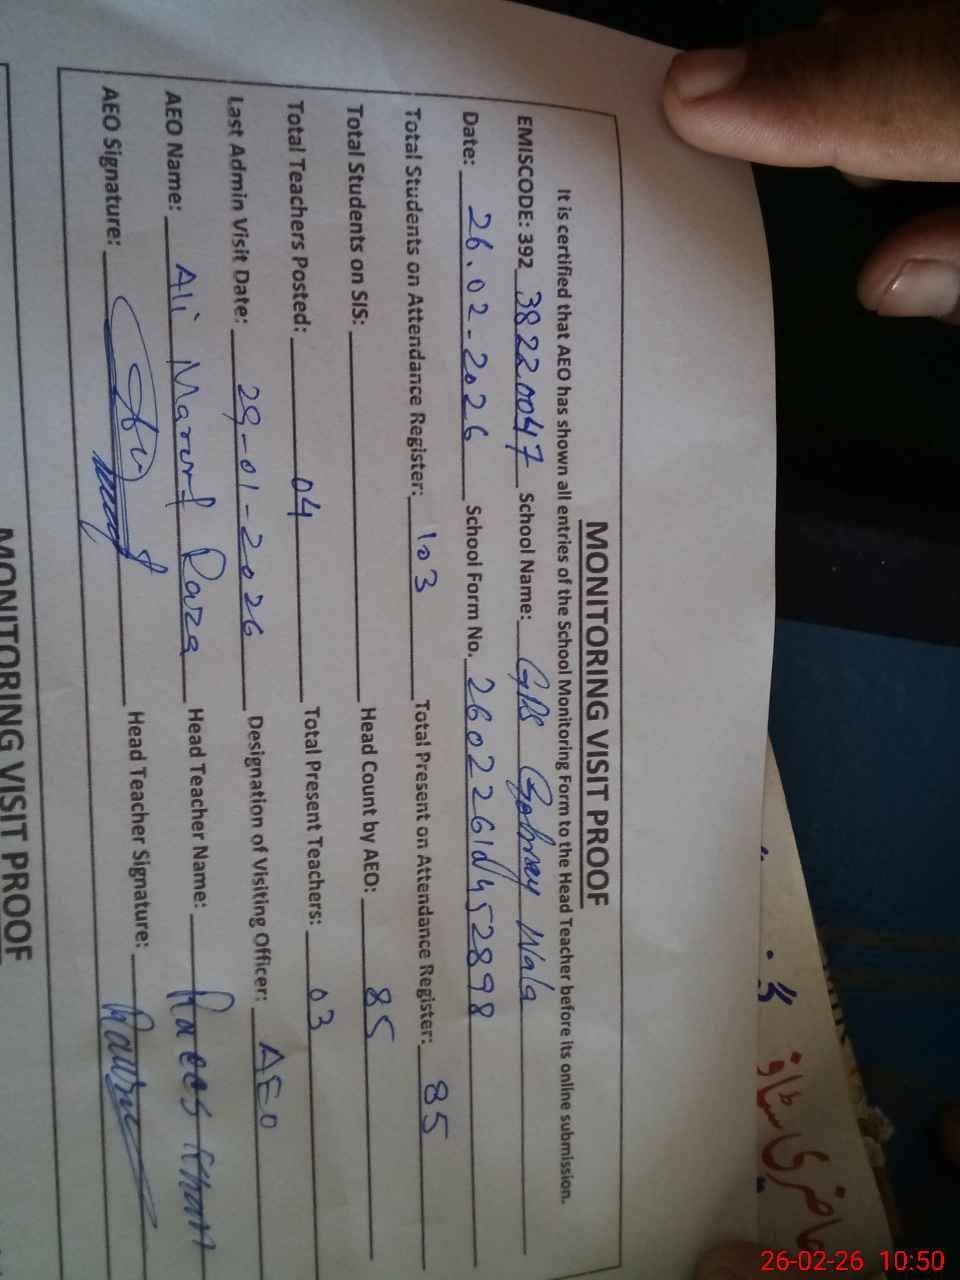 MONITORING VISIT PROOF
It is certified that AEO has shown all entries of the School Monitoring Form to the Head Teacher before its online submission.
EMISCODE: 392 38220047 School Name: GPS Gahray Wala
Date: 26.02-2026 School Form No. 260226102452898
Total Students on Attendance Register: 103 Total Present on Attendance Register: 85
Total Students on SIS: Head Count by AEO: 85
Total Teachers Posted: 04 Total Present Teachers: 03
Last Admin Visit Date: 29-01-2026 Designation of Visiting Officer: AEO
AEO Name: Ali Maroof Raza Head Teacher Name: Raees Khan
AEO Signature: Head Teacher Signature:
MONITORING VISIT PROOF
حاضری سٹاف
26-02-26 10:50